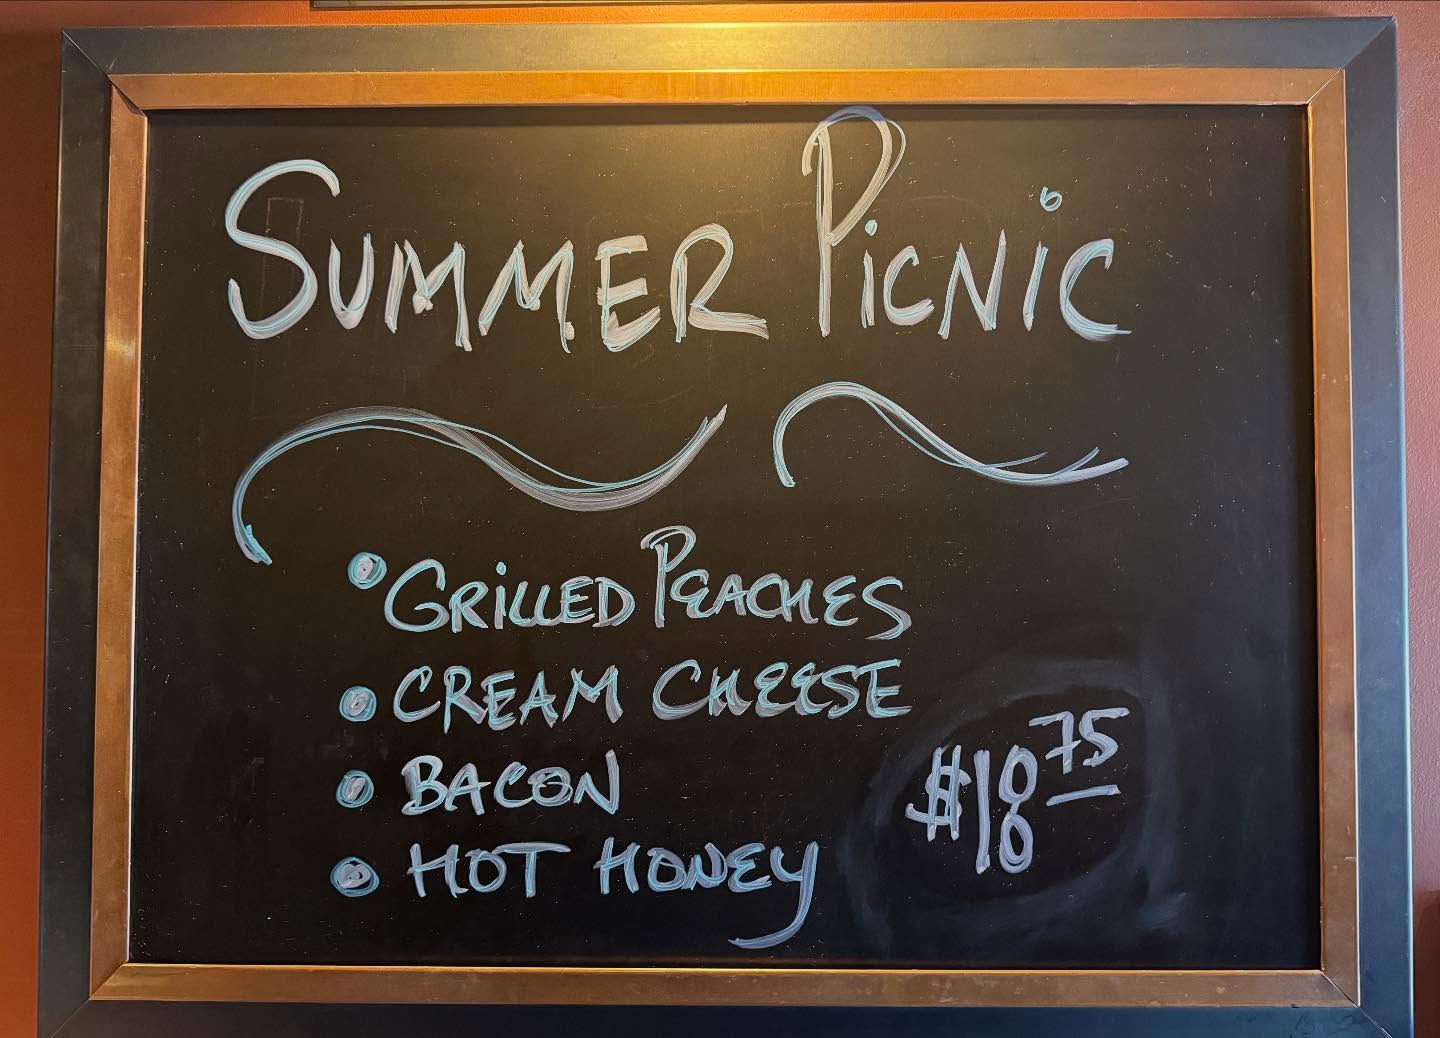 SUMMER PICNIC
• GRILLED PEACHES
• CREAM CHEESE
• BACON
• HOT HONEY
$18 75